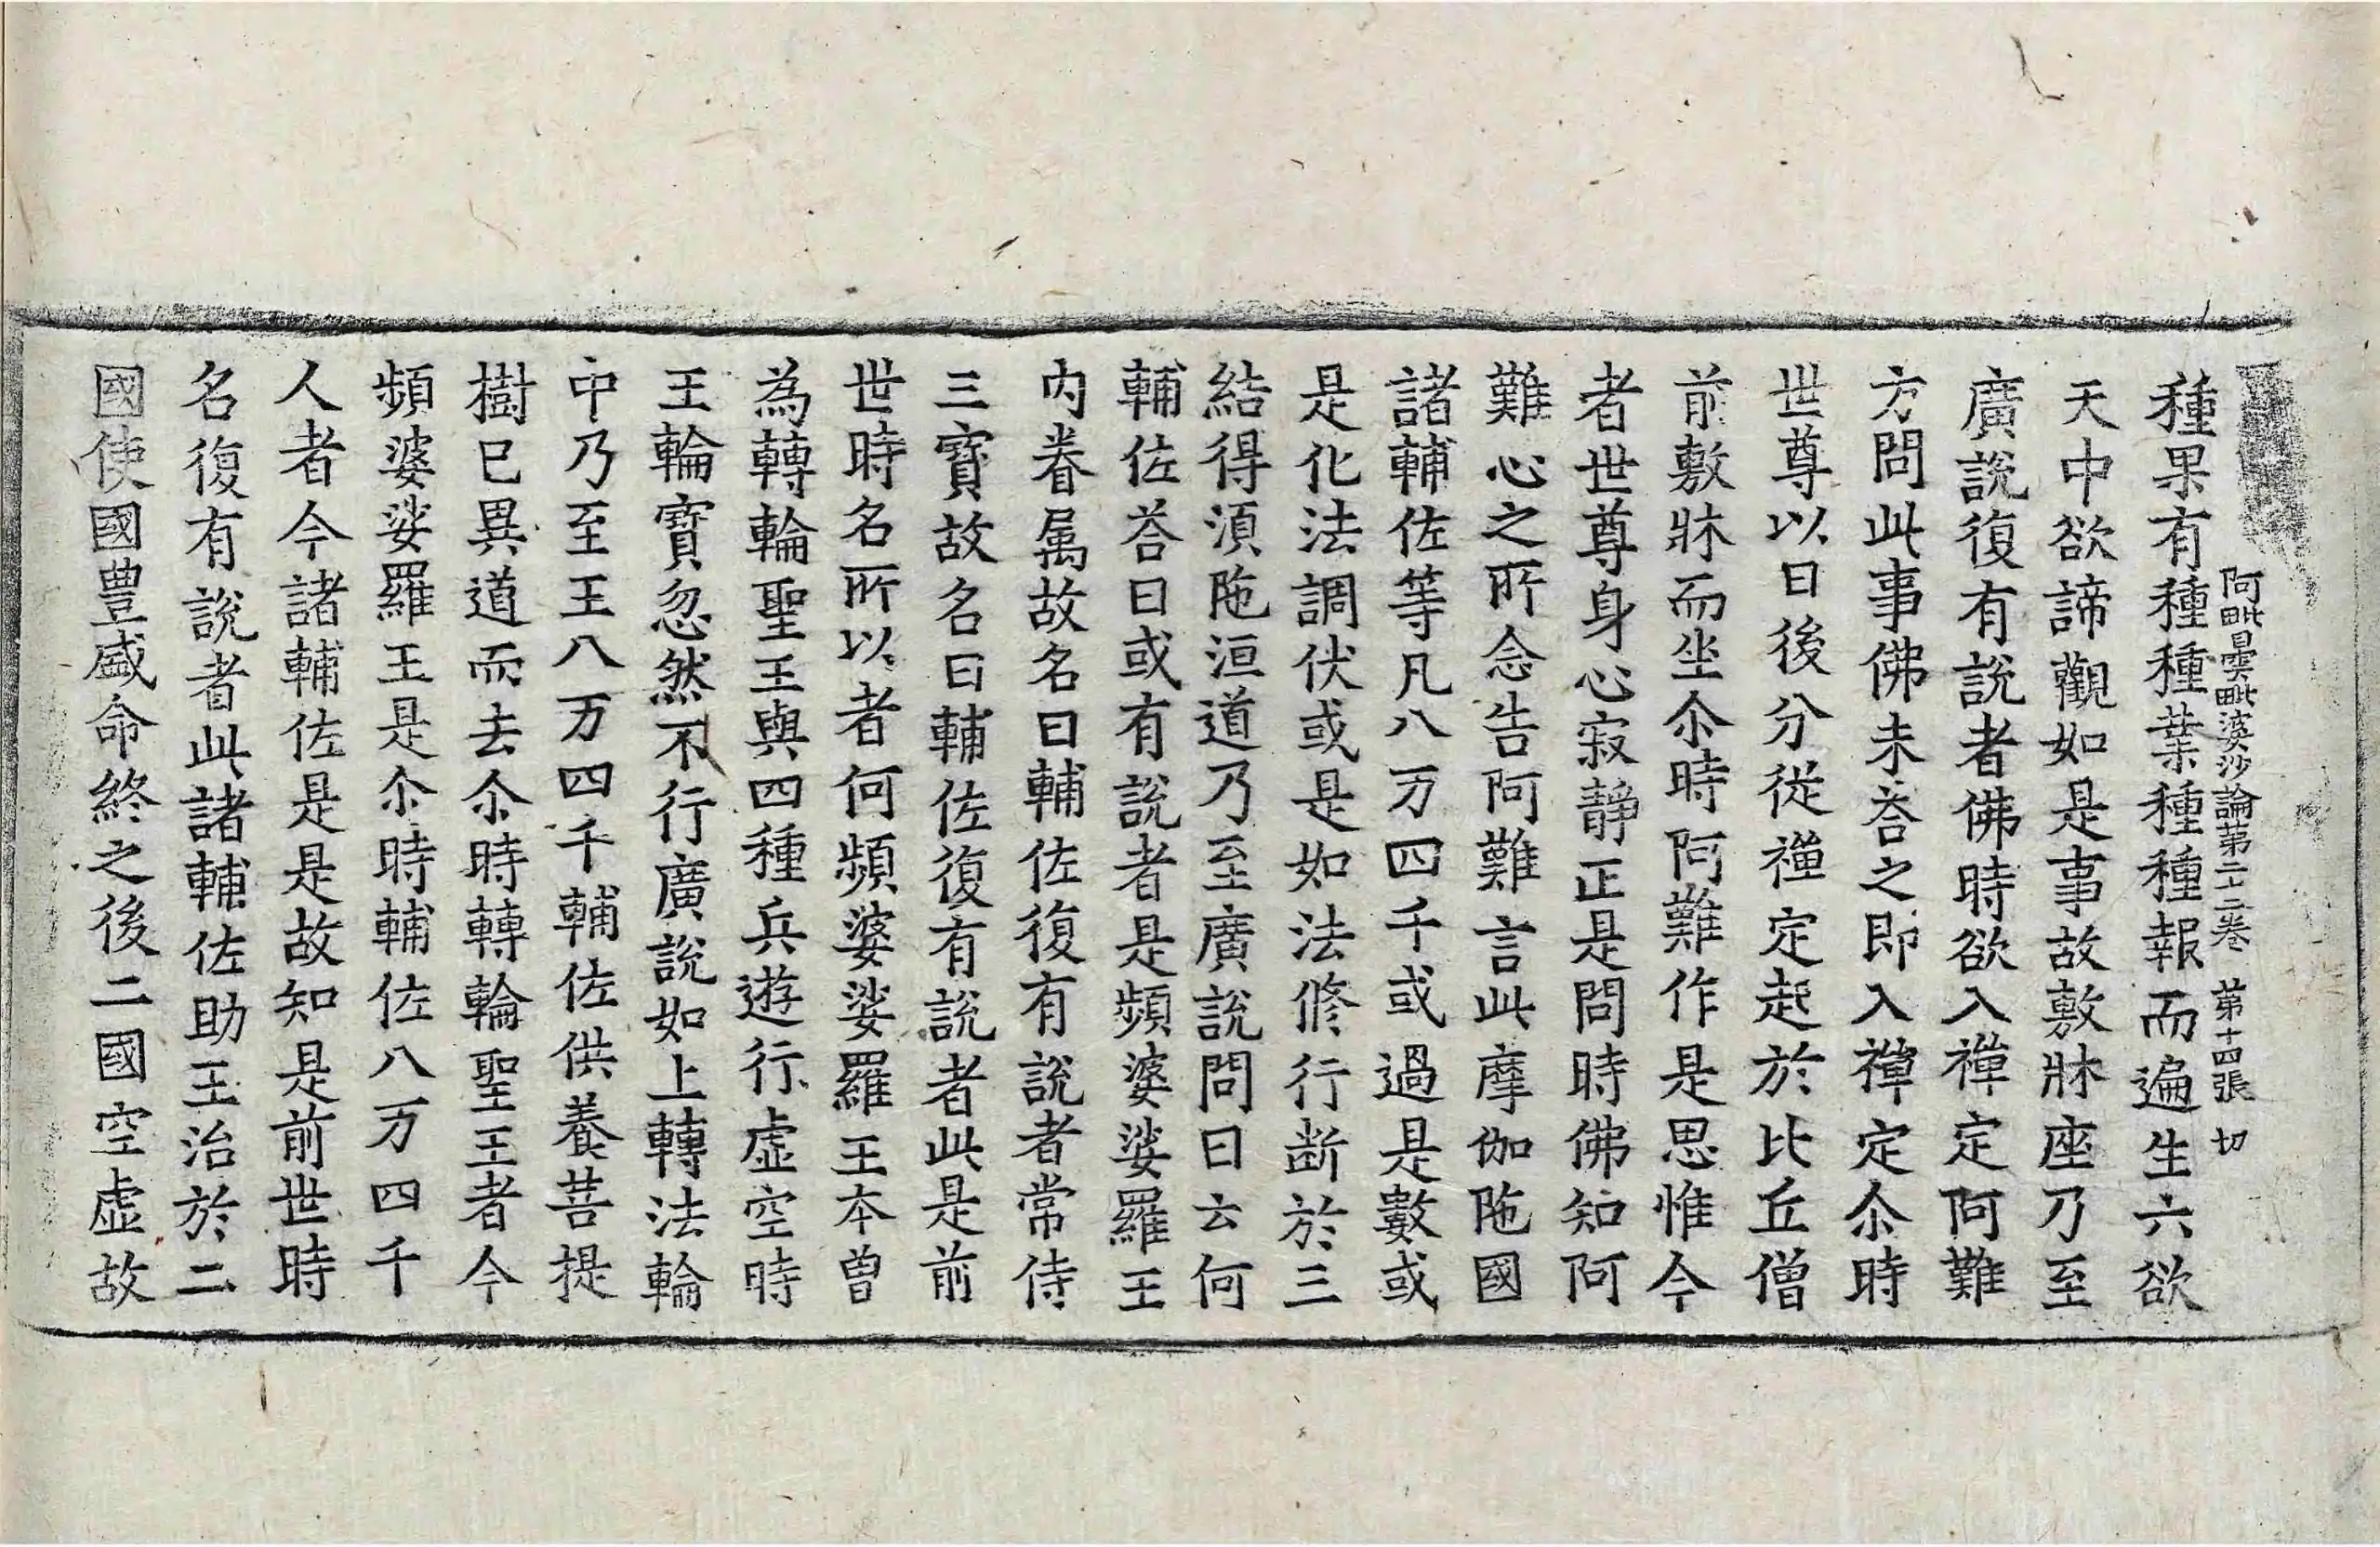 阿毗曇毗婆沙論第二十二卷 第十四張 切
種果有種種業種種報而遍生六欲
天中欲諦觀如是事故敷牀座乃至
廣說復有說者佛時欲入禪定阿難
方問此事佛未荅之即入禪定尒時
世尊以日後分從禪定起於比丘僧
前敷牀而坐尒時阿難作是思惟今
者世尊身心寂靜正是問時佛知阿
難心之所念告阿難言此摩伽陁國
諸輔佐等凡八万四千或過是數或
是化法調伏或是如法修行断於三
結得湏陁洹道乃至廣說問曰云何
輔佐荅曰或有說者是頻婆娑羅王
内眷属故名曰輔佐復有說者常侍
三寶故名曰輔佐復有說者此是前
世時名所以者何頻婆娑羅王本曾
為轉輪聖王與四種兵遊行虚空時
王輪寶忽然不行廣說如上轉法輪
中乃至王八万四千輔佐供養菩提
樹已異道而去尒時轉輪聖王者今
頻婆娑羅王是尒時輔佐八万四千
人者今諸輔佐是是故知是前世時
名復有說者此諸輔佐助王治於二
國使國豊盛命終之後二國空虚故